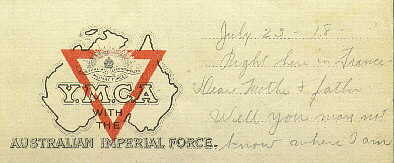 Y.M.C.A
WITH
THE
AUSTRALIAN IMPERIAL FORCE.
July 23 - 18 -
Right here in France
Dear Mother & father
Well you may not
know where I am